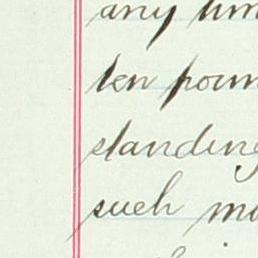 any tim
ten poun
standing
such mo